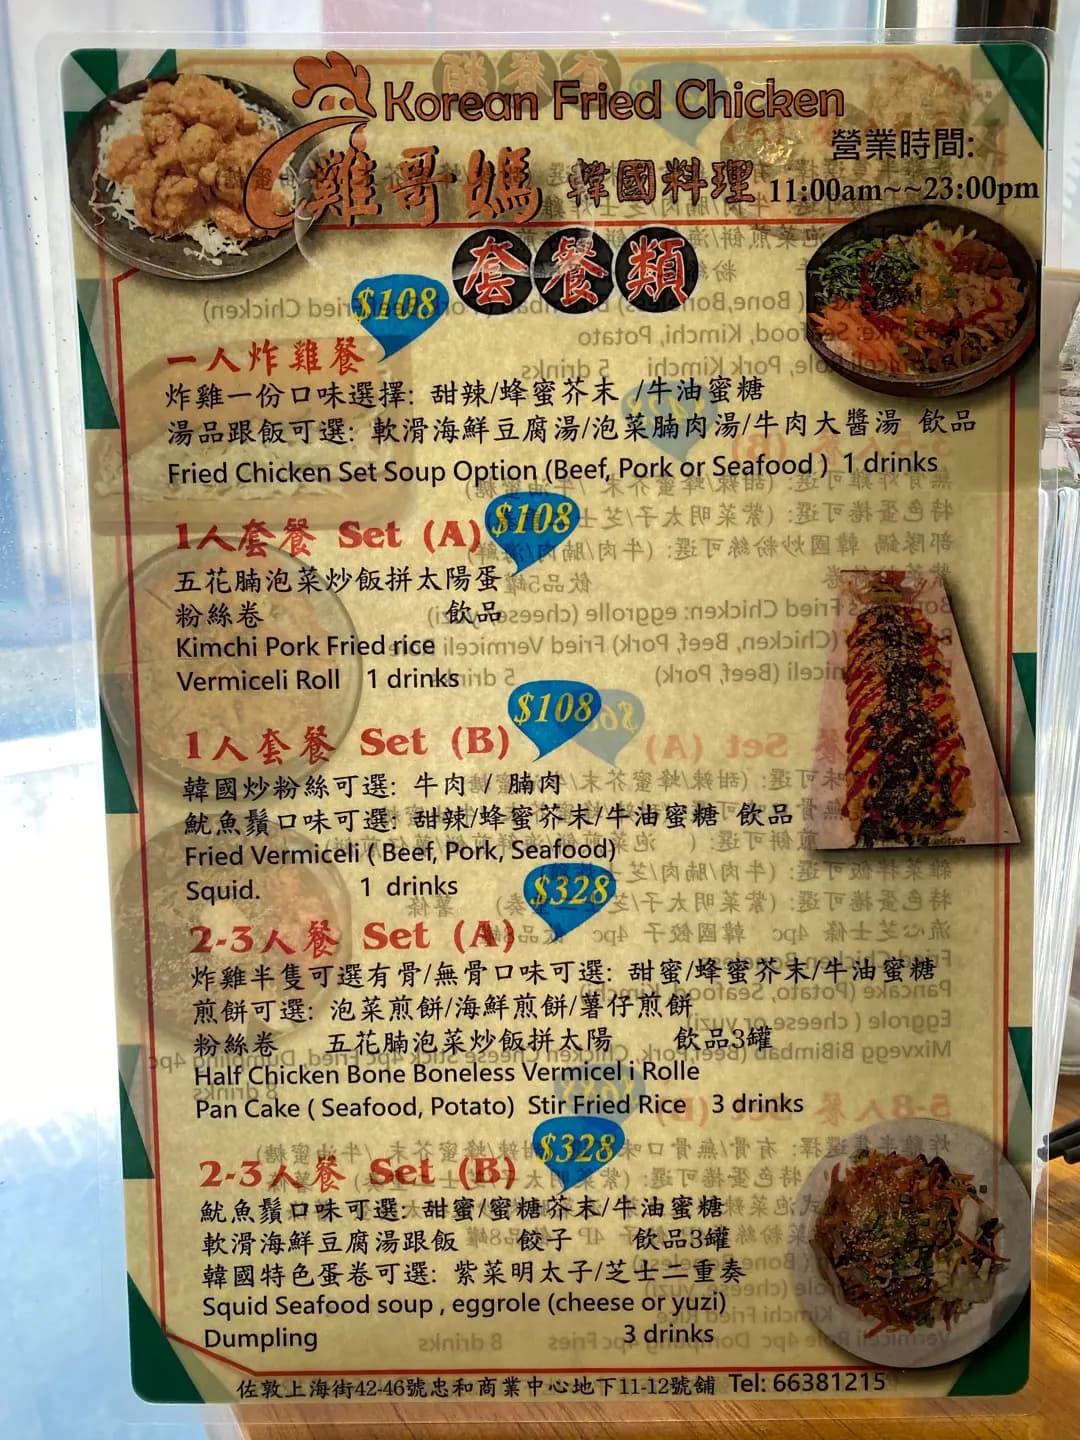 Korean Fried Chicken
營業時間:
雞哥媽 韓國料理 11:00am~~23:00pm
套餐類
$108
一人炸雞餐
炸雞一份口味選擇: 甜辣/蜂蜜芥末 /牛油蜜糖
湯品跟飯可選: 軟滑海鮮豆腐湯/泡菜腩肉湯/牛肉大醬湯 飲品
Fried Chicken Set Soup Option (Beef, Pork or Seafood ) 1 drinks
1人套餐 Set (A) $108
五花腩泡菜炒飯拼太陽蛋
粉絲卷 飲品
Kimchi Pork Fried rice
Vermiceli Roll 1 drinks
1人套餐 Set (B) $108
韓國炒粉絲可選: 牛肉 / 腩肉
魷魚鬚口味可選: 甜辣/蜂蜜芥末/牛油蜜糖 飲品
Fried Vermiceli ( Beef, Pork, Seafood)
Squid. 1 drinks
2-3人餐 Set (A) $328
炸雞半隻可選有骨/無骨口味可選: 甜蜜/蜂蜜芥末/牛油蜜糖
煎餅可選: 泡菜煎餅/海鮮煎餅/薯仔煎餅
粉絲卷 五花腩泡菜炒飯拼太陽 飲品3罐
Half Chicken Bone Boneless Vermicel i Rolle
Pan Cake ( Seafood, Potato) Stir Fried Rice 3 drinks
2-3人餐 Set (B) $328
魷魚鬚口味可選: 甜蜜/蜜糖芥末/牛油蜜糖
軟滑海鮮豆腐湯跟飯 餃子 飲品3罐
韓國特色蛋卷可選: 紫菜明太子/芝士二重奏
Squid Seafood soup , eggrole (cheese or yuzi)
Dumpling 3 drinks
佐敦上海街42-46號忠和商業中心地下11-12號舖 Tel: 66381215